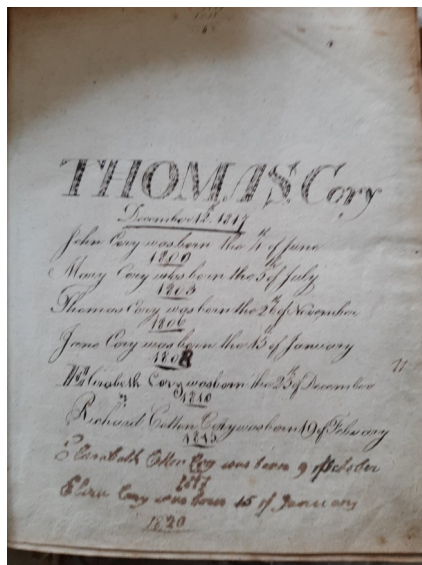 THOMAS Cory
December 12th 1817
John Cory was born the 4th of June
1800
Mary Cory was born the 5th of July
1803
Thomas Cory was born the 26th of November
1806
Jane Cory was born the 13 of January
1808
Elizabeth Cory was born the 25th of December
1810
Richard Cotton Cory was born 19 of February
1815
Elizabeth Cotton Cory was born 9 of October
1817
Eliza Cory was born 15 of January
1820